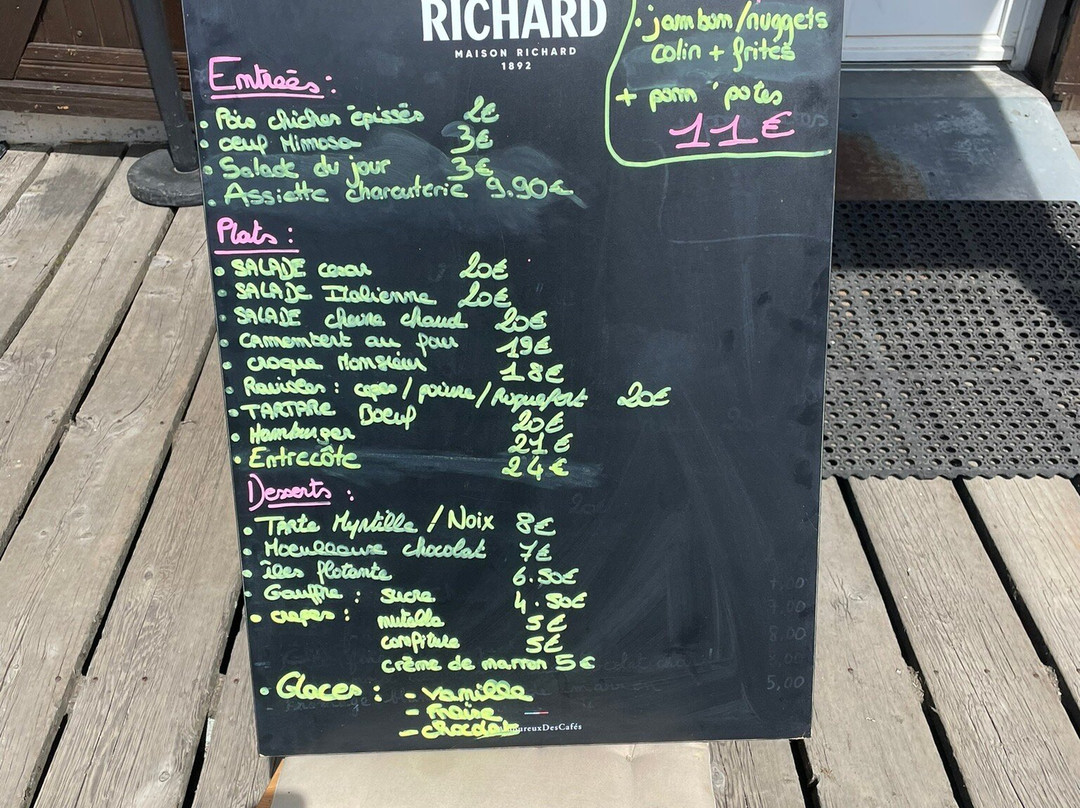 RICHARD
MAISON RICHARD
1892
jambom/nuggets
colin + frites
+ pom' potes
11€
Entrées :
Pois chiches épissés 2€
oeuf Mimosa 3€
Salade du jour 3€
Assiette charcuterie 9.90€
Plats :
SALADE cesar 20€
SALADE Italienne 20€
SALADE chevre chaud 20€
Cammembert au four 19€
croque Monsieur 18€
Ravioles : cepes / poivre / Roquefort 20€
TARTARE Boeuf 20€
Hamburger 21€
Entrecôte 24€
Desserts :
TARTE Myrtille / Noix 8€
Moeulleaux chocolat 7€
îles flotante 6.50€
Gauffre : sucre 4.50€
crepes : nutella 5€
confiture 5€
crème de marron 5€
Glaces : - vanille
- Fraise
- chocolat
ureuxDesCafés